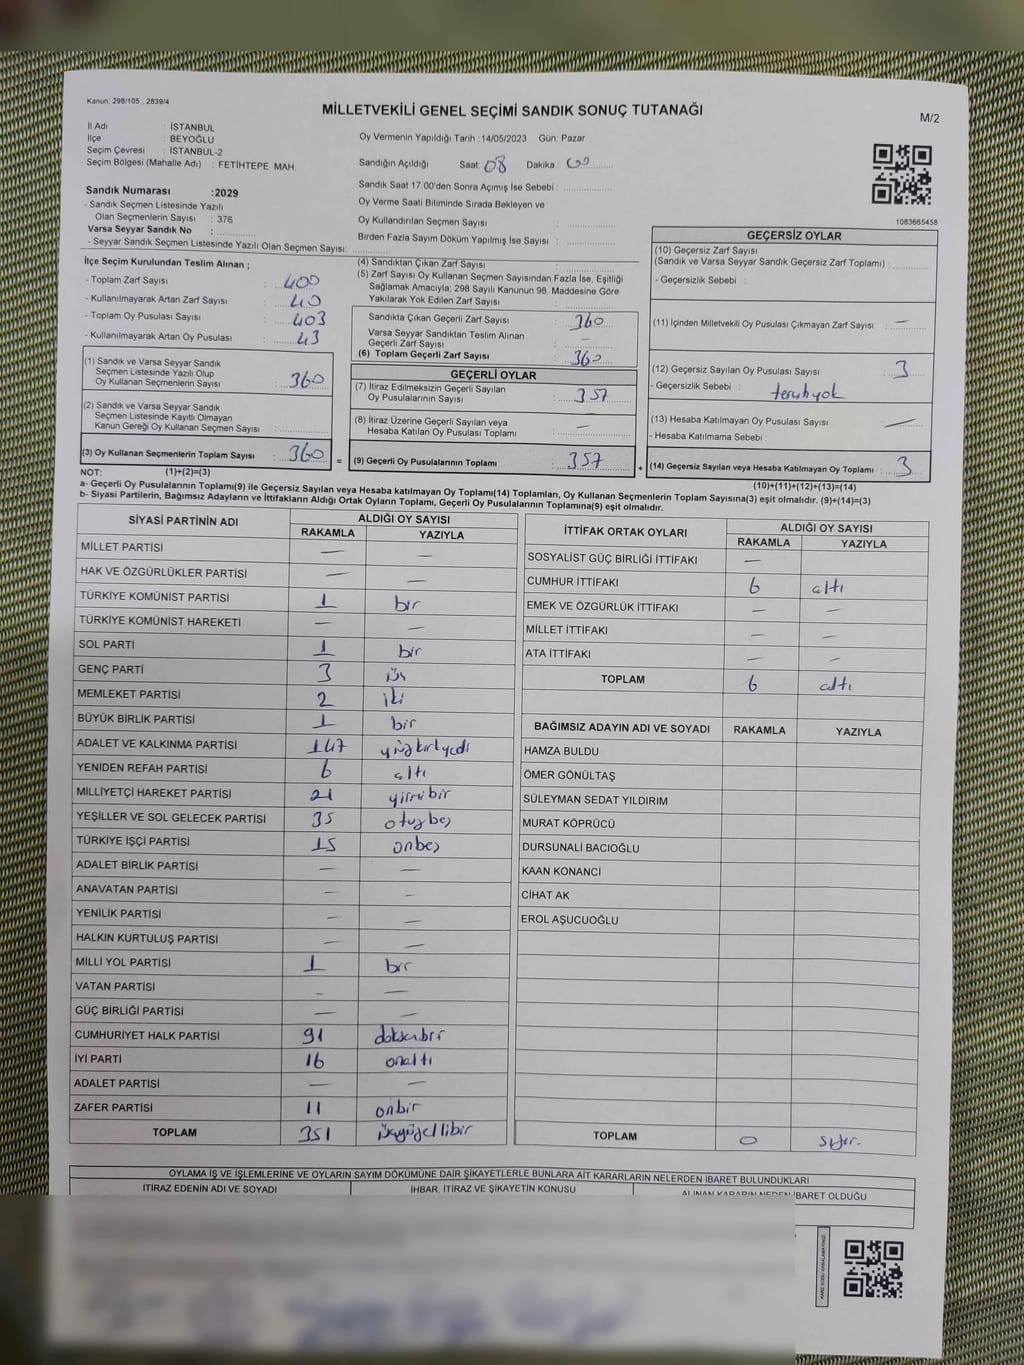 Kanun: 298/105 , 2839/4
MİLLETVEKİLİ GENEL SEÇİMİ SANDIK SONUÇ TUTANAĞI
M/2
İl Adı : İSTANBUL
İlçe : BEYOĞLU
Seçim Çevresi : İSTANBUL-2
Seçim Bölgesi (Mahalle Adı) : FETİHTEPE MAH.
Oy Vermenin Yapıldığı Tarih : 14/05/2023 Gün: Pazar
Sandığın Açıldığı Saat: 08 Dakika : 00
Sandık Saat 17:00'den Sonra Açımış İse Sebebi :
Oy Verme Saati Bitiminde Sırada Bekleyen ve
Oy Kullandırılan Seçmen Sayısı :
Birden Fazla Sayım Döküm Yapılmış İse Sayısı :
Sandık Numarası : 2029
- Sandık Seçmen Listesinde Yazılı
Olan Seçmenlerin Sayısı : 376
Varsa Seyyar Sandık No :
- Seyyar Sandık Seçmen Listesinde Yazılı Olan Seçmen Sayısı:
1083665458
İlçe Seçim Kurulundan Teslim Alınan ;
- Toplam Zarf Sayısı : 400
- Kullanılmayarak Artan Zarf Sayısı : 40
- Toplam Oy Pusulası Sayısı : 403
- Kullanılmayarak Artan Oy Pusulası : 43
(1) Sandık ve Varsa Seyyar Sandık
Seçmen Listesinde Yazılı Olup
Oy Kullanan Seçmenlerin Sayısı : 360
(2) Sandık ve Varsa Seyyar Sandık
Seçmen Listesinde Kayıtlı Olmayan
Kanun Gereği Oy Kullanan Seçmen Sayısı :
(3) Oy Kullanan Seçmenlerin Toplam Sayısı : 360
(4) Sandıktan Çıkan Zarf Sayısı :
(5) Zarf Sayısı Oy Kullanan Seçmen Sayısından Fazla İse, Eşitliği
Sağlamak Amacıyla; 298 Sayılı Kanunun 98. Maddesine Göre
Yakılarak Yok Edilen Zarf Sayısı :
Sandıkta Çıkan Geçerli Zarf Sayısı : 360
Varsa Seyyar Sandıktan Teslim Alınan
Geçerli Zarf Sayısı : —
(6) Toplam Geçerli Zarf Sayısı : 360
GEÇERLİ OYLAR
(7) İtiraz Edilmeksizin Geçerli Sayılan
Oy Pusulalarının Sayısı : 357
(8) İtiraz Üzerine Geçerli Sayılan veya
Hesaba Katılan Oy Pusulası Toplamı : —
= (9) Geçerli Oy Pusulalarının Toplamı : 357
GEÇERSİZ OYLAR
(10) Geçersiz Zarf Sayısı
(Sandık ve Varsa Seyyar Sandık Geçersiz Zarf Toplamı) :
- Geçersizlik Sebebi :
(11) İçinden Milletvekili Oy Pusulası Çıkmayan Zarf Sayısı : —
(12) Geçersiz Sayılan Oy Pusulası Sayısı : 3
- Geçersizlik Sebebi :
(13) Hesaba Katılmayan Oy Pusulası Sayısı : —
- Hesaba Katılmama Sebebi :
+ (14) Geçersiz Sayılan veya Hesaba Katılmayan Oy Toplamı : 3
NOT: (1)+(2)=(3)
(10)+(11)+(12)+(13)=(14)
a- Geçerli Oy Pusulalarının Toplamı(9) ile Geçersiz Sayılan veya Hesaba katılmayan Oy Toplamı(14) Toplamları, Oy Kullanan Seçmenlerin Toplam Sayısına(3) eşit olmalıdır. (9)+(14)=(3)
b- Siyasi Partilerin, Bağımsız Adayların ve İttifakların Aldığı Ortak Oyların Toplamı, Geçerli Oy Pusulalarının Toplamına(9) eşit olmalıdır.
SİYASİ PARTİNİN ADI ALDIĞI OY SAYISI
RAKAMLA YAZIYLA
MİLLET PARTİSİ — —
HAK VE ÖZGÜRLÜKLER PARTİSİ — —
TÜRKİYE KOMÜNİST PARTİSİ 1 bir
TÜRKİYE KOMÜNİST HAREKETİ — —
SOL PARTİ 1 bir
GENÇ PARTİ 3 üç
MEMLEKET PARTİSİ 2 iki
BÜYÜK BİRLİK PARTİSİ 1 bir
ADALET VE KALKINMA PARTİSİ 147 yüzkırkyedi
YENİDEN REFAH PARTİSİ 6 altı
MİLLİYETÇİ HAREKET PARTİSİ 21 yirmibir
YEŞİLLER VE SOL GELECEK PARTİSİ 35 otuzbeş
TÜRKİYE İŞÇİ PARTİSİ 15 onbeş
ADALET BİRLİK PARTİSİ — —
ANAVATAN PARTİSİ — —
YENİLİK PARTİSİ — —
HALKIN KURTULUŞ PARTİSİ — —
MİLLİ YOL PARTİSİ 1 bir
VATAN PARTİSİ — —
GÜÇ BİRLİĞİ PARTİSİ — —
CUMHURİYET HALK PARTİSİ 91 doksanbir
İYİ PARTİ 16 onaltı
ADALET PARTİSİ — —
ZAFER PARTİSİ 11 onbir
TOPLAM 351 üçyüzellibir
İTTİFAK ORTAK OYLARI ALDIĞI OY SAYISI
RAKAMLA YAZIYLA
SOSYALİST GÜÇ BİRLİĞİ İTTİFAKI —
CUMHUR İTTİFAKI 6 altı
EMEK VE ÖZGÜRLÜK İTTİFAKI — —
MİLLET İTTİFAKI — —
ATA İTTİFAKI — —
TOPLAM 6 altı
BAĞIMSIZ ADAYIN ADI VE SOYADI RAKAMLA YAZIYLA
HAMZA BULDU
ÖMER GÖNÜLTAŞ
SÜLEYMAN SEDAT YILDIRIM
MURAT KÖPRÜCÜ
DURSUNALİ BACIOĞLU
KAAN KONANCİ
CİHAT AK
EROL AŞUCUOĞLU
TOPLAM 0 sıfır.
OYLAMA İŞ VE İŞLEMLERİNE VE OYLARIN SAYIM DÖKÜMÜNE DAİR ŞİKAYETLERLE BUNLARA AİT KARARLARIN NELERDEN İBARET BULUNDUKLARI
İTİRAZ EDENİN ADI VE SOYADI İHBAR, İTİRAZ VE ŞİKAYETİN KONUSU ALINAN KARARIN NEDEN İBARET OLDUĞU